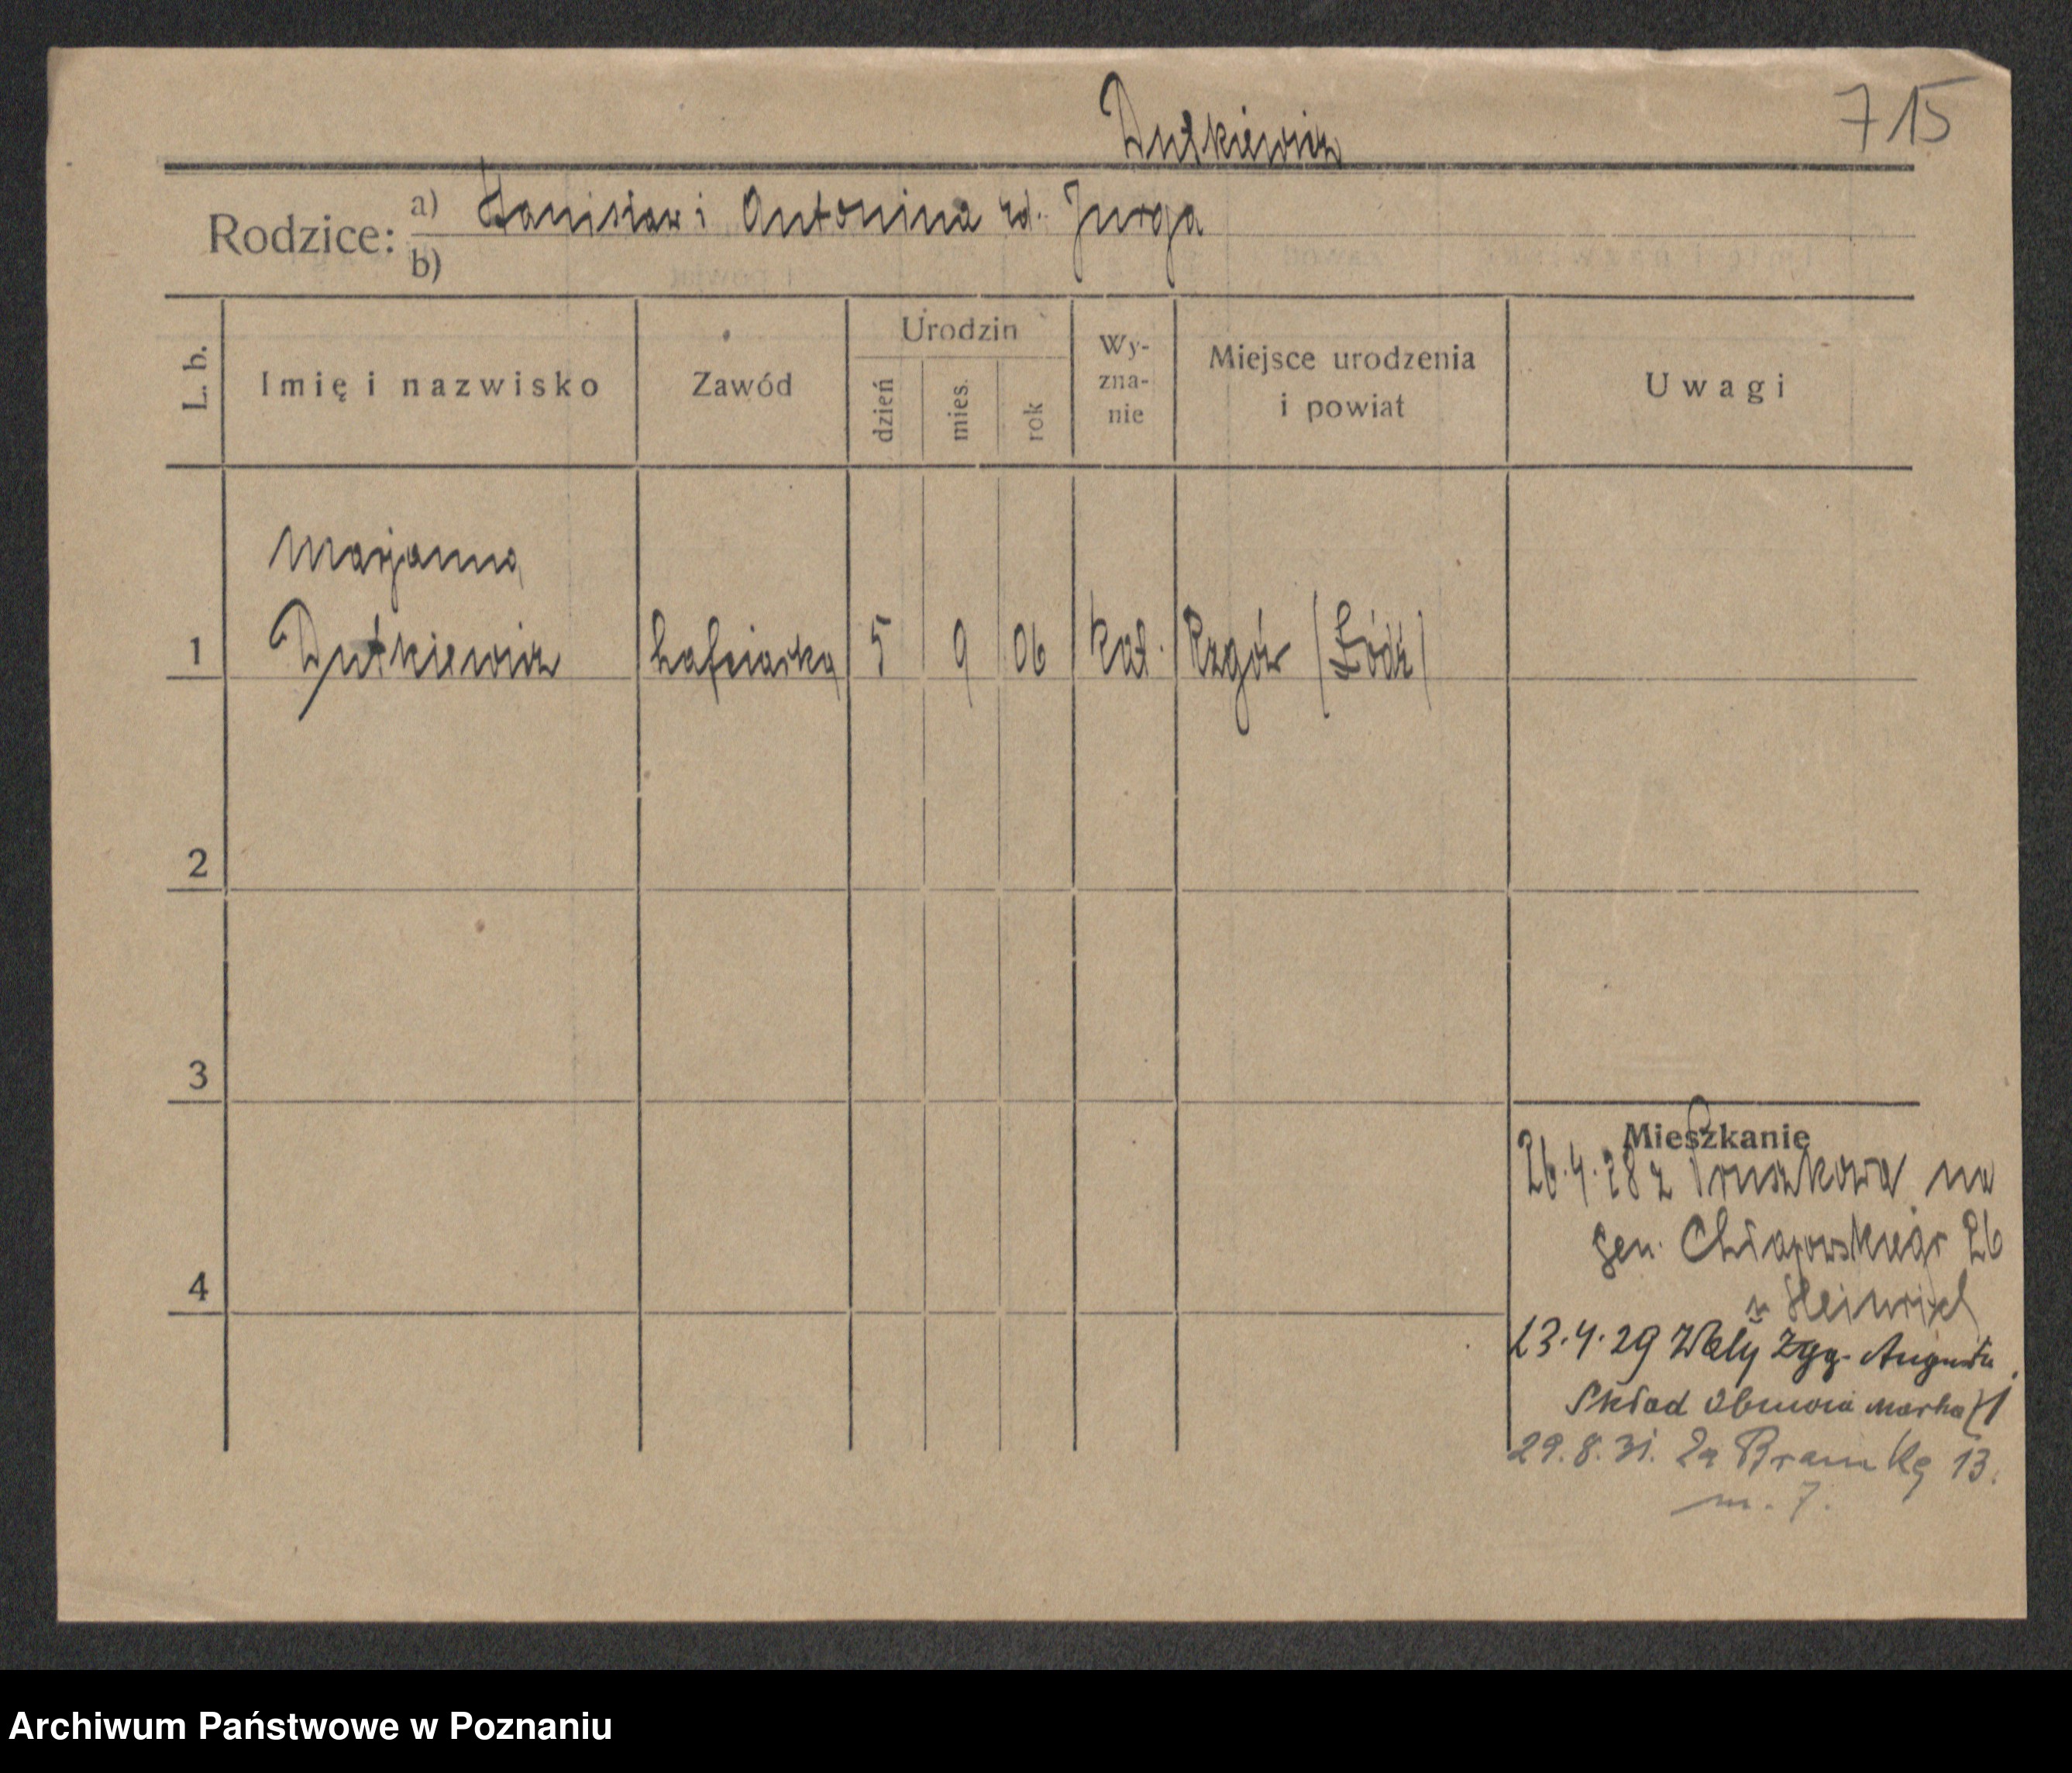 Dutkiewicz
715
Rodzice: a) Stanisław i Antonina zd. Jurga
b)
L. b.
Imię i nazwisko
Zawód
Urodzin
dzień
mies.
rok
Wy-
zna-
nie
Miejsce urodzenia
i powiat
Uwagi
Marjanna
1 Dutkiewicz hafciarka 5 9 06 kat. Rzgów (Łódź)
2
3
4
Mieszkanie
26.4.28 z Pruszkowa na
gen. Chłapowskiego 26
u Heinrich
13.4.29 Wały Zyg. Augusta
Skład obuwia
29.8.31. Za Bramką 13.
m. 7.
Archiwum Państwowe w Poznaniu